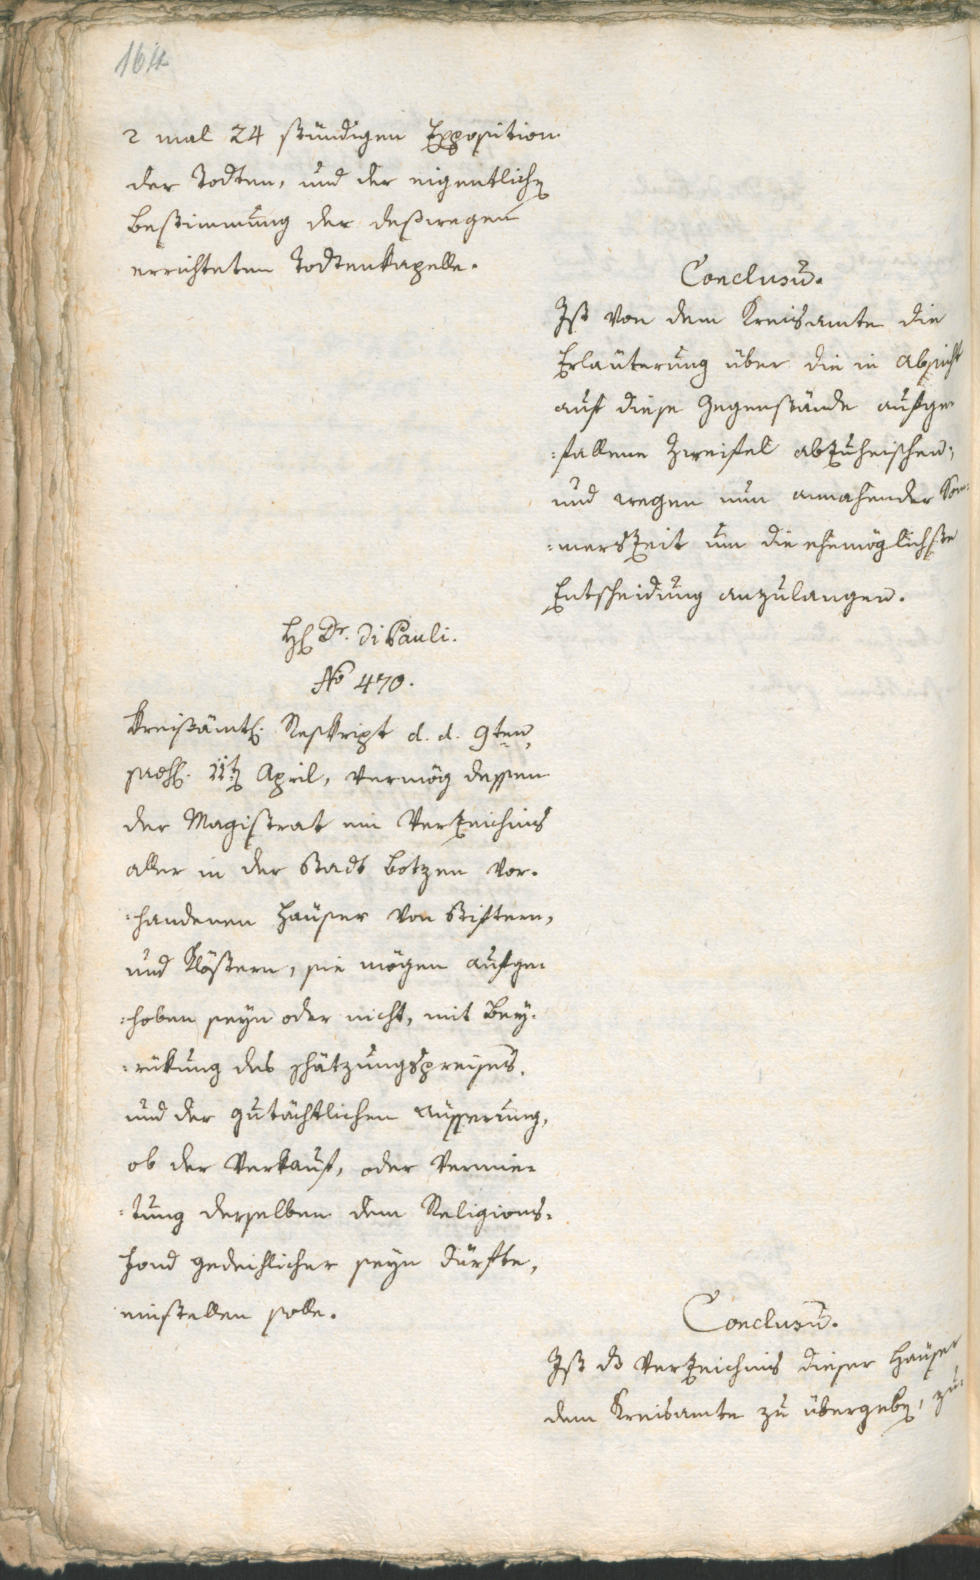 164
2 mal 24 stündigen Exposition
der Todten, und der eigentlichen
Bestimmung der deßwegen
errichteten Todtenkapelle.
Conclusum.
Ist von dem Kreisamte die
Erläuterung über die in Absicht
auf diese Gegenstände aufge-
:fallene Zweifel abzuheischen;
und wegen nun annahender Som:
:merszeit um die ehemöglichste
Entscheidung anzulangen.
H. Dr. Di Pauli.
No 470.
Kreisämtl. Reskript d. d. 9ten,
praes. 11t. April, vermög dessen
der Magistrat ein Verzeichnis
aller in der Stadt Botzen vor-
:handenen Häuser von Stiftern,
und Klöstern, sie mögen aufge-
:hoben seyn oder nicht, mit Bey-
:rükung des Schätzungspreises,
und der gutächtlichen Äusserung,
ob der Verkauf, oder Vermie-
:tung derselben dem Religions-
fond gedeihlicher seyn dürfte,
einstellen solle.
Conclusum.
Ist das Verzeichnis dieser Häuser
dem Kreisamte zu übergeben, zu-